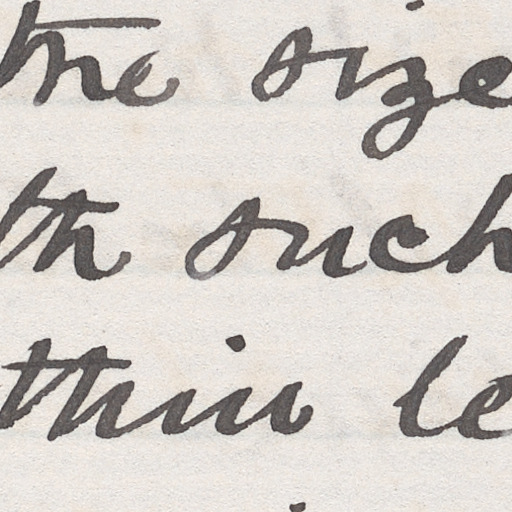 the size
th such
thin le